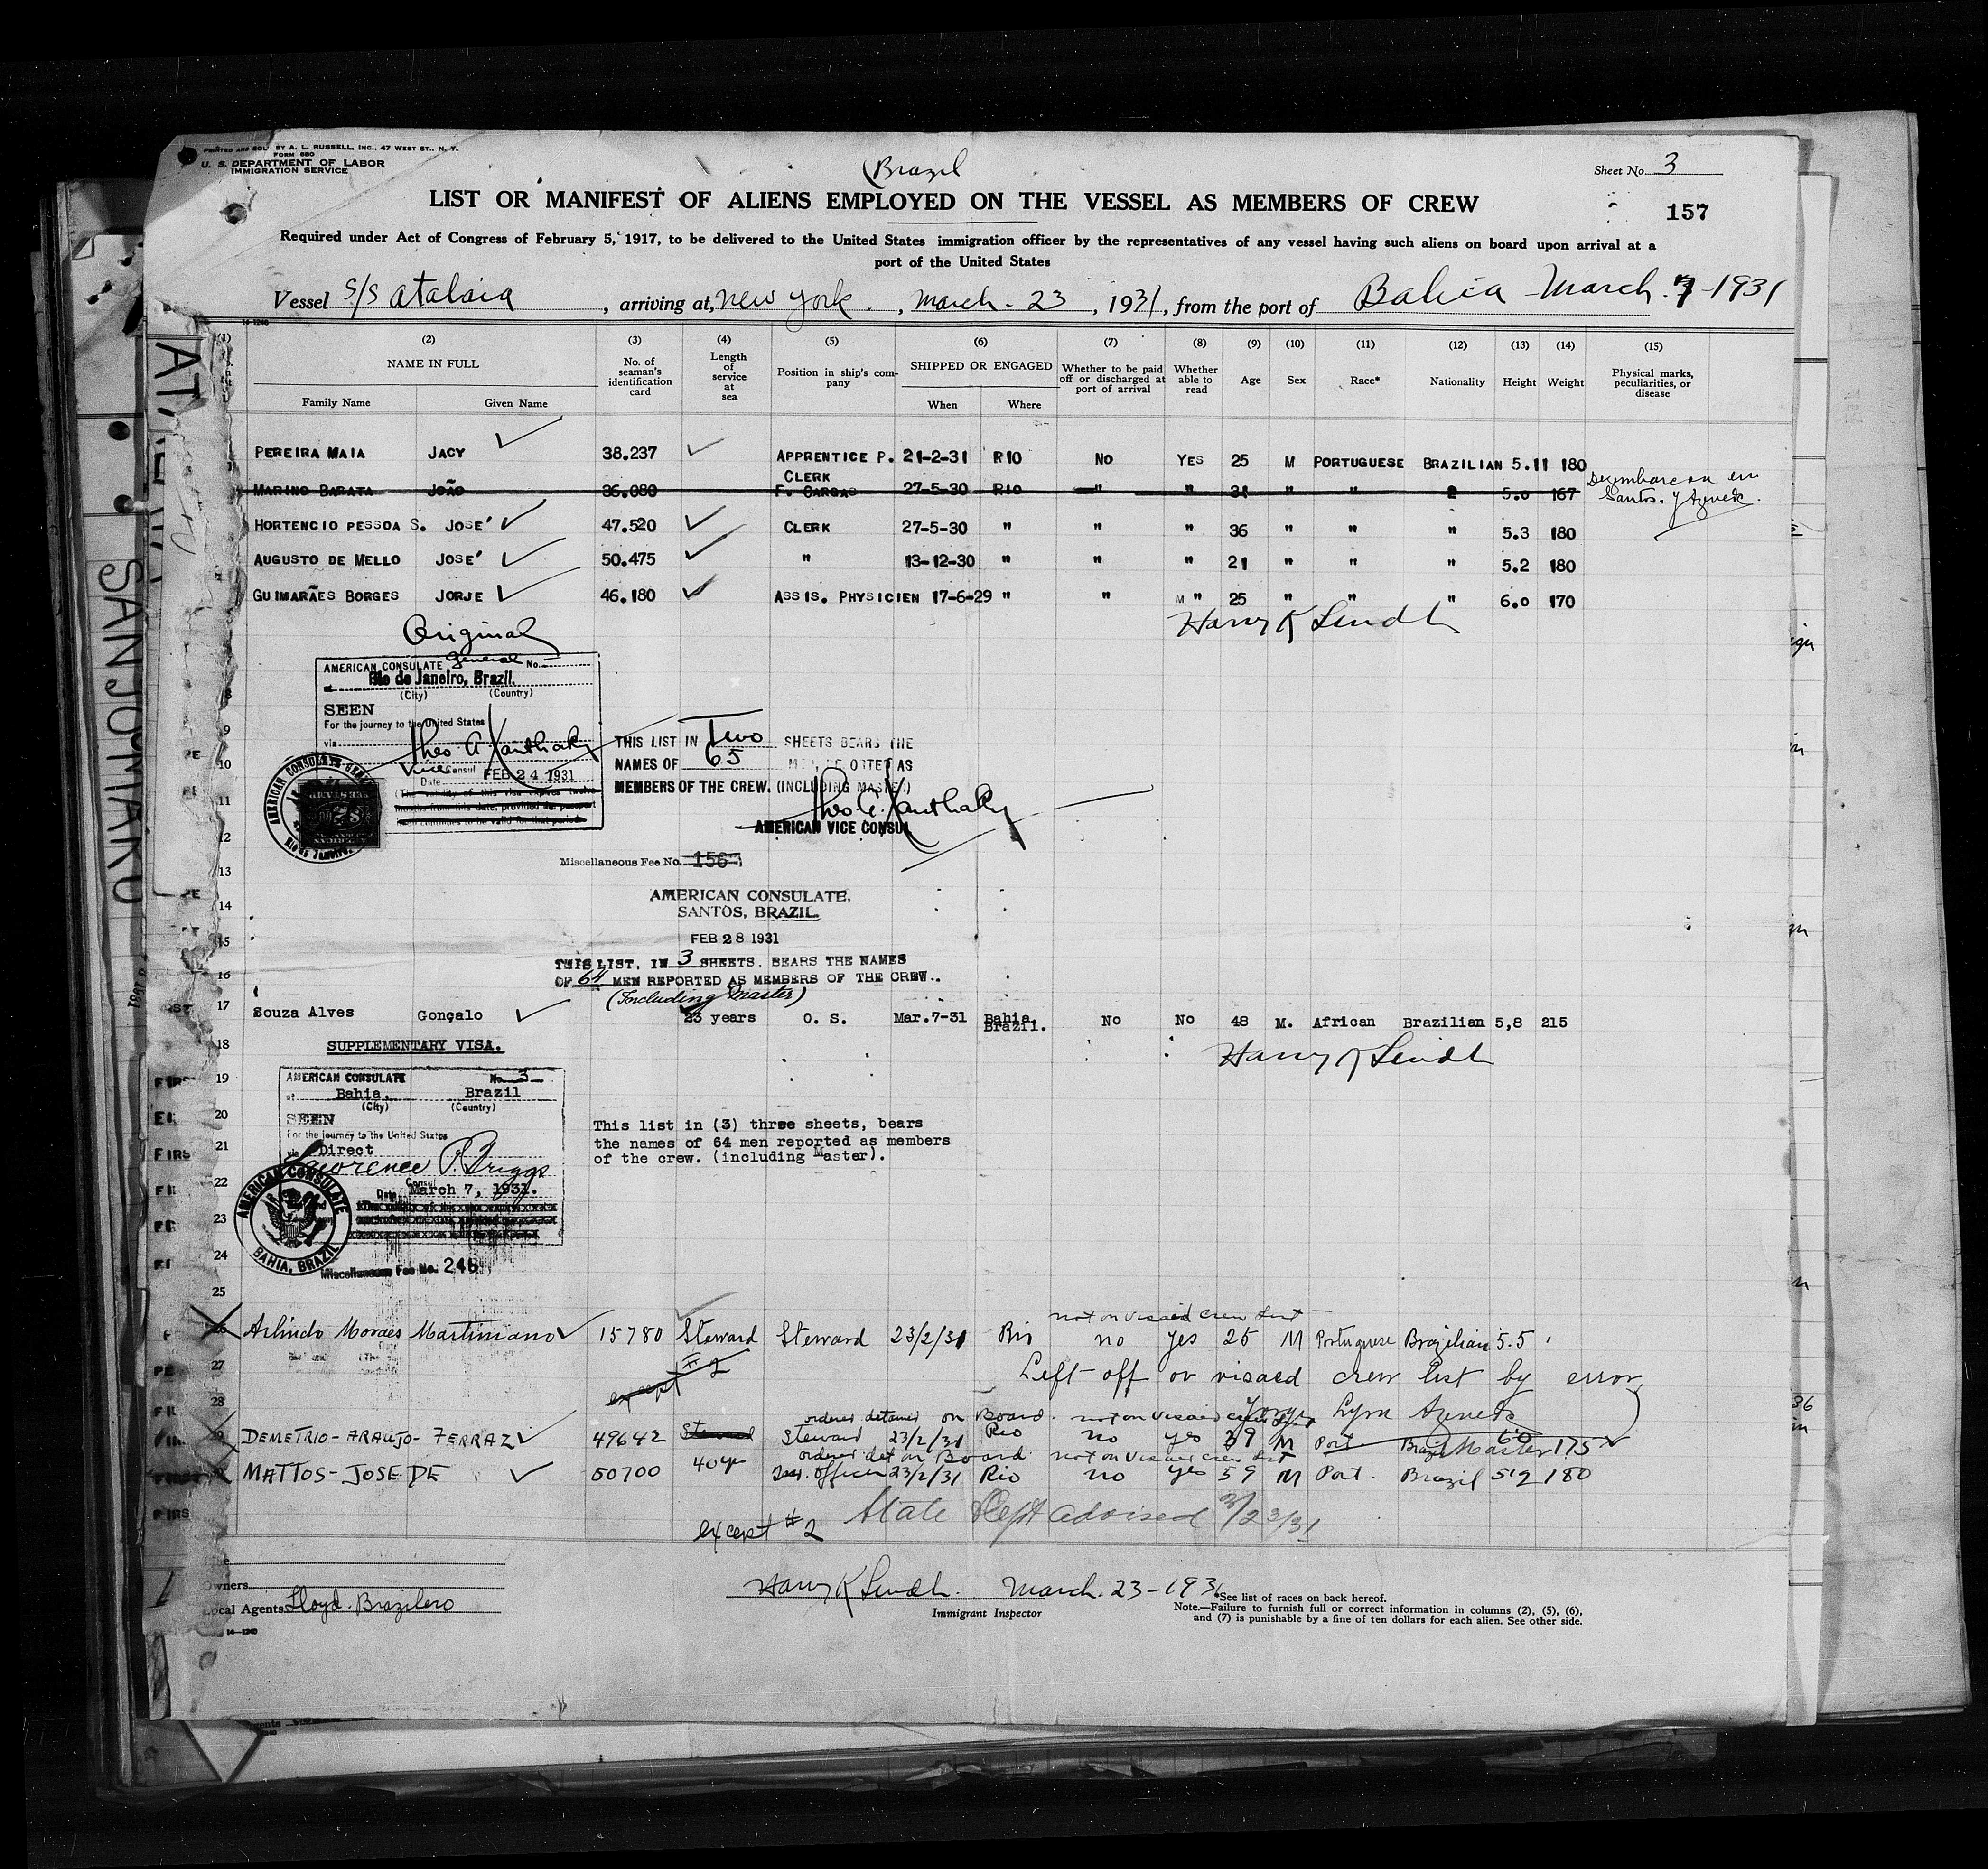 PRINTED AND SOLD BY A. L. RUSSELL, INC., 47 WEST ST., N. Y.
FORM 680
U. S. DEPARTMENT OF LABOR
IMMIGRATION SERVICE
Brazil
Sheet No. 3
LIST OR MANIFEST OF ALIENS EMPLOYED ON THE VESSEL AS MEMBERS OF CREW
157
Required under Act of Congress of February 5, 1917, to be delivered to the United States immigration officer by the representatives of any vessel having such aliens on board upon arrival at a
port of the United States
Vessel S/S Atalaia, arriving at, New York, March - 23, 1931, from the port of Bahia - March. 7 - 1931
14-1240
(1) (2) (3) (4) (5) (6) (7) (8) (9) (10) (11) (12) (13) (14) (15)
NAME IN FULL No. of seaman's identification card Length of service at sea Position in ship's company SHIPPED OR ENGAGED Whether to be paid off or discharged at port of arrival Whether able to read Age Sex Race* Nationality Height Weight Physical marks, peculiarities, or disease
Family Name Given Name When Where
PEREIRA MAIA JACY 38.237 APPRENTICE P. 21-2-31 RIO NO YES 25 M PORTUGUESE BRAZILIAN 5.11 180
CLERK
MARINO BARATA JOÃO 36.080 F. CARGAS 27-5-30 RIO " " 31 " " 5.0 167 Desembarcou en
Santos. Y Azevedo.
HORTENCIO PESSOA S. JOSE' 47.520 CLERK 27-5-30 " " " 36 " " " 5.3 180
AUGUSTO DE MELLO JOSE' 50.475 " 13-12-30 " " " 21 " " " 5.2 180
GUIMARÃES BORGES JORJE 46.180 ASSIS. PHYSICIEN 17-6-29 " " M " 25 " " " 6.0 170
Harry K Lindh
Original
AMERICAN CONSULATE General No.
Rio de Janeiro, Brazil.
(City) (Country)
SEEN
For the journey to the United States
via
Theo A Xanthaky
Vice Consul
Date FEB 24 1931
AMERICAN CONSULATE
RIO DE JANEIRO
THIS LIST IN Two SHEETS BEARS THE
NAMES OF 65 MEN REPORTED AS
MEMBERS OF THE CREW. (INCLUDING MASTER)
Theo. A. Xanthaky
AMERICAN VICE CONSUL
Miscellaneous Fee No. 156
AMERICAN CONSULATE,
SANTOS, BRAZIL.
FEB 28 1931
THIS LIST, IN 3 SHEETS, BEARS THE NAMES
OF 64 MEN REPORTED AS MEMBERS OF THE CREW.
(Including Master)
8
9
10
11
12
13
14
15
16
17 Souza Alves Gonçalo 23 years O. S. Mar.7-31 Bahia Brazil. No No 48 M. African Brazilian 5,8 215
18 SUPPLEMENTARY VISA. Harry K Lindh
19
20
21
22
23
24
25
AMERICAN CONSULATE No. 3
at Bahia, Brazil
(City) (Country)
SEEN
For the journey to the United States
via Direct
Lawrence P. Briggs
Consul
Date March 7, 1931.
AMERICAN CONSULATE
BAHIA, BRAZIL
Miscellaneous Fee No. 246
This list in (3) three sheets, bears
the names of 64 men reported as members
of the crew. (including Master).
not on visaed crew list
26 Arlindo Moraes Martiniano 15780 Steward Steward 23/2/31 Rio no yes 25 M Portuguese Brazilian 5.5
27 except # 2 Left off on visaed crew list by error
28 Lyra Azevedo
Master
ordered detained on Board. not on visaed crew list
DEMETRIO - ARAUJO - FERRAZ 49642 Steward Steward 23/2/31 Rio no yes 39 M Port. Brazil 60 175
ordered det on Board not on visaed crew list
MATTOS - JOSE DE 50700 40 yr officer 23/2/31 Rio no yes 59 M Port. Brazil 5'9 180
except # 2 State Dept advised 3/23/31
Owners
Local Agents Lloyd. Brazilero
14-1240
Harry K Lindh. March. 23 - 1931
Immigrant Inspector
*See list of races on back hereof.
Note.—Failure to furnish full or correct information in columns (2), (5), (6),
and (7) is punishable by a fine of ten dollars for each alien. See other side.
SANJOMARU